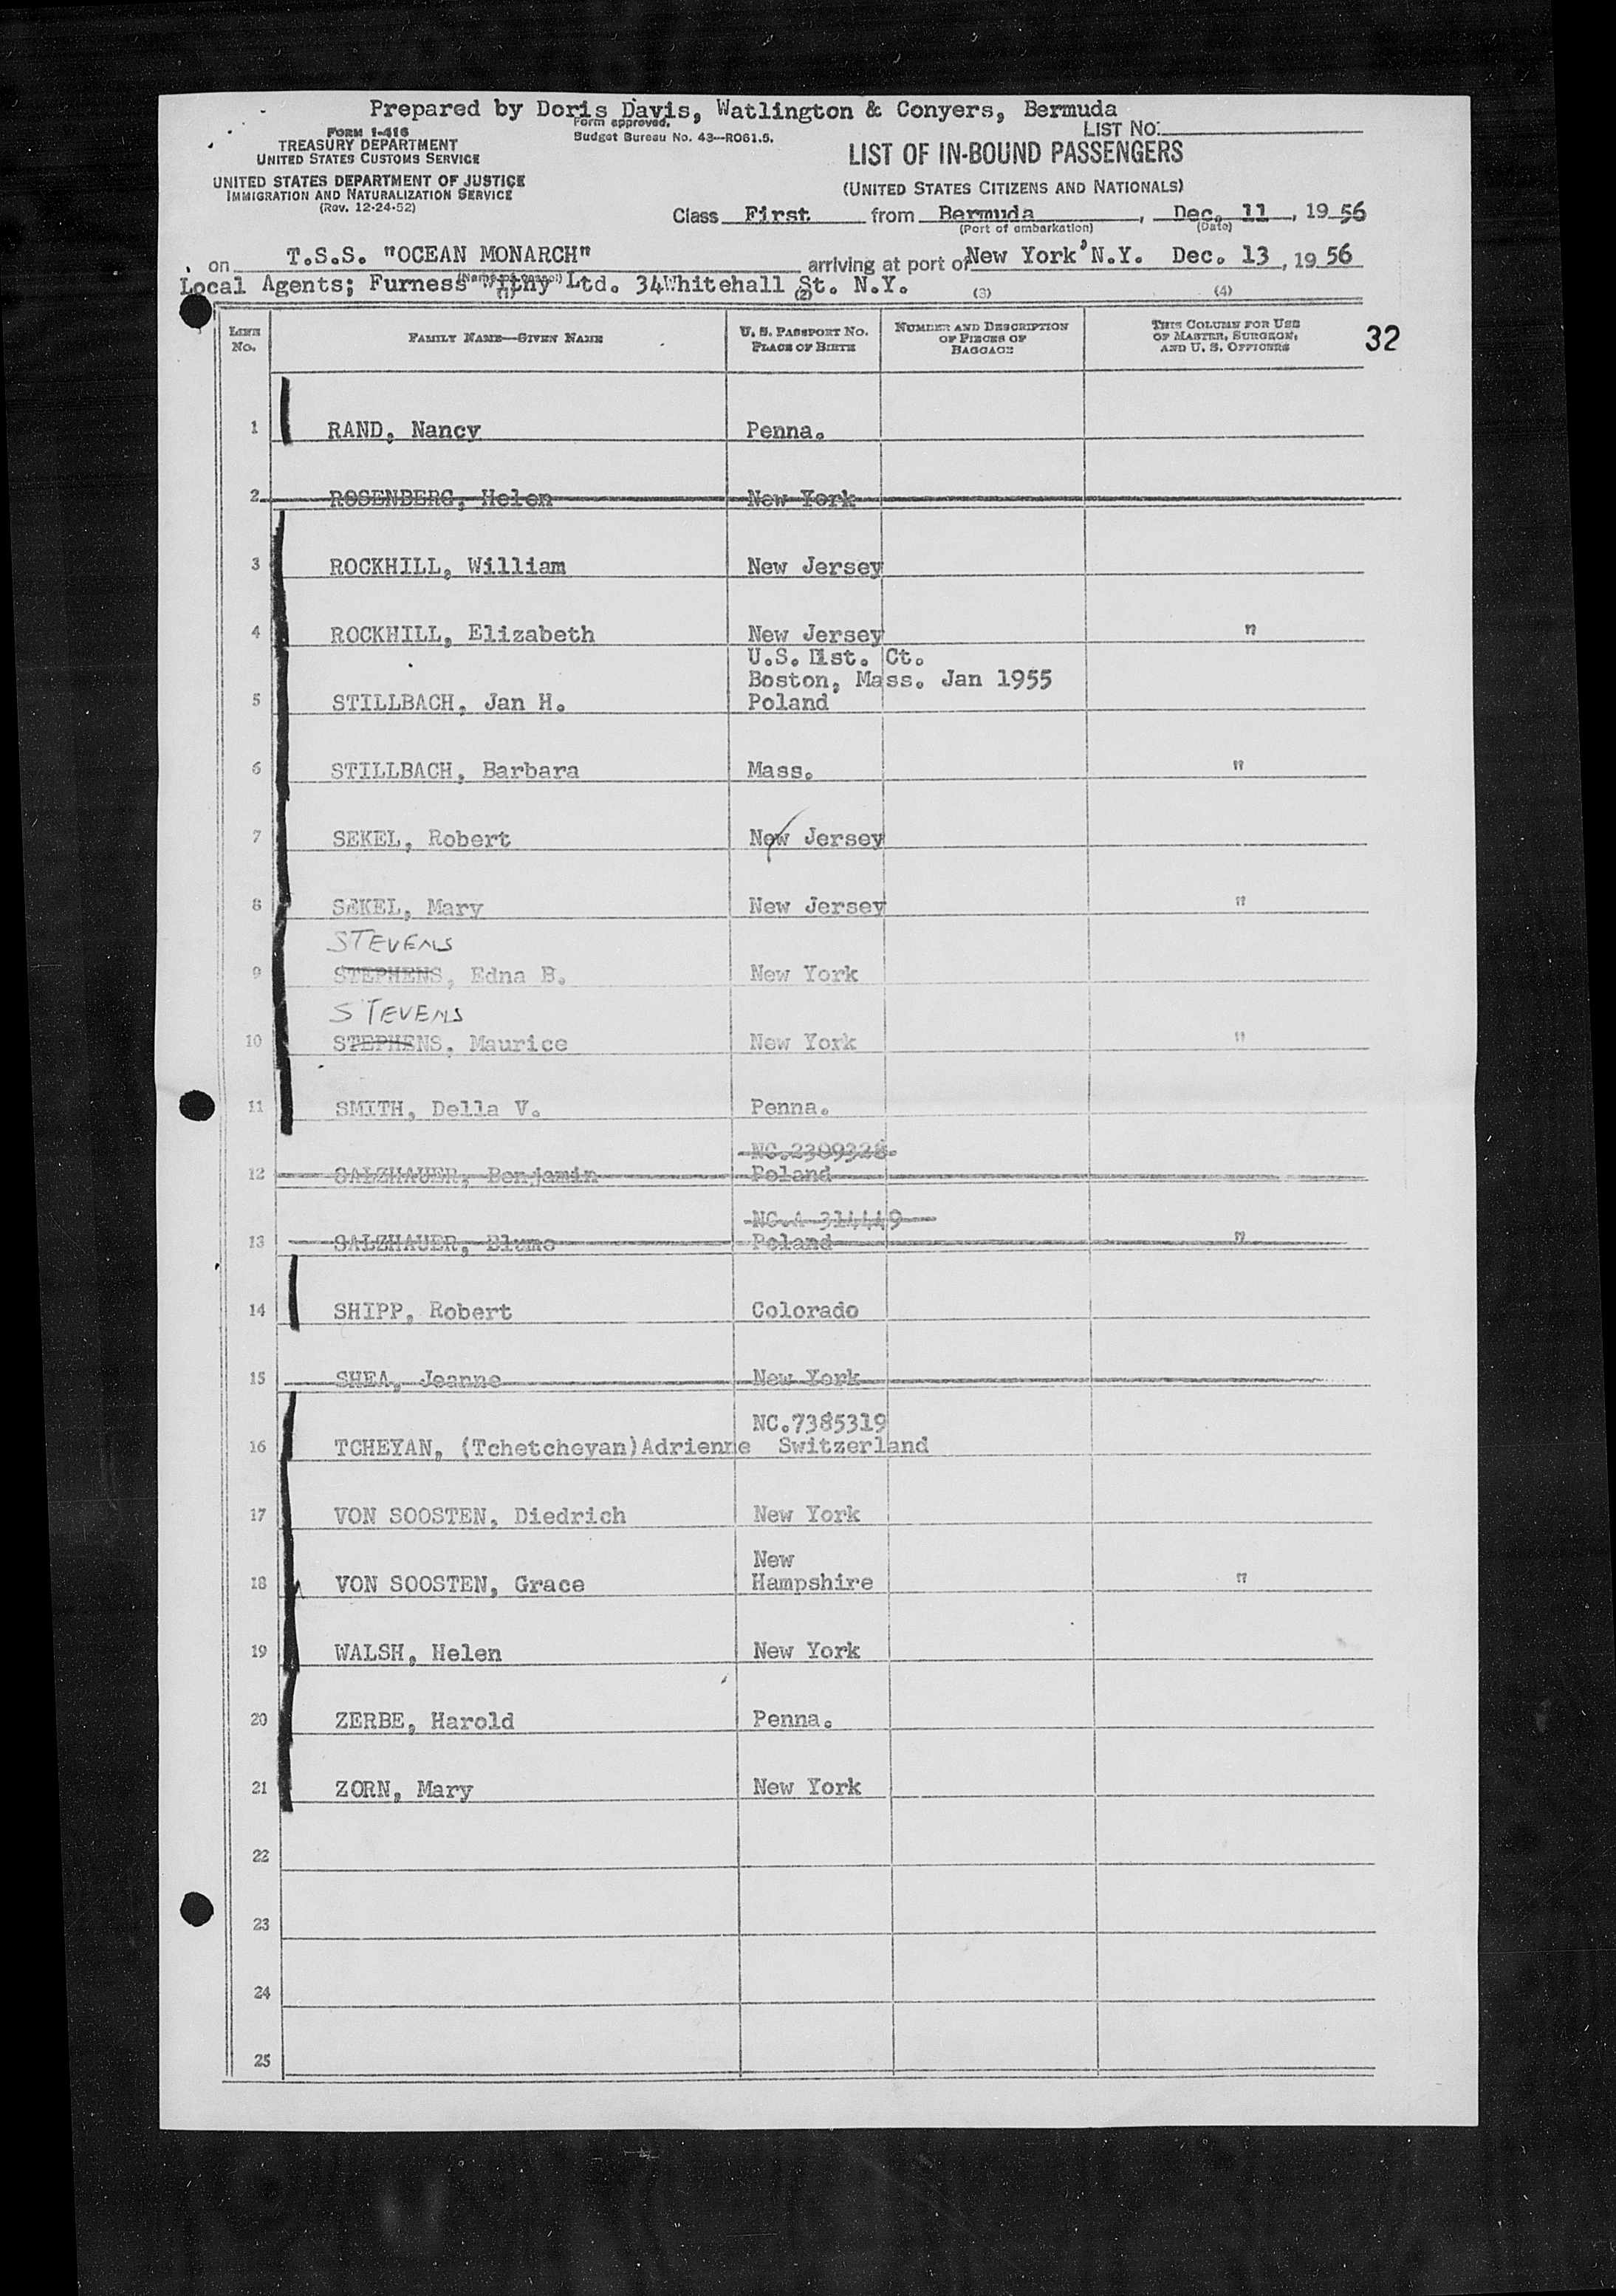 Prepared by Doris Davis, Watlington & Conyers, Bermuda
Form approved.
Budget Bureau No. 43—RO61.5.
LIST NO.
FORM I-416
TREASURY DEPARTMENT
UNITED STATES CUSTOMS SERVICE
UNITED STATES DEPARTMENT OF JUSTICE
IMMIGRATION AND NATURALIZATION SERVICE
(Rev. 12-24-52)
LIST OF IN-BOUND PASSENGERS
(UNITED STATES CITIZENS AND NATIONALS)
Class First from Bermuda, Dec. 11, 1956
(Port of embarkation) (Date)
on T.S.S. "OCEAN MONARCH" arriving at port of New York'N.Y. Dec. 13, 1956
(Name of vessel)
Local Agents; Furness Withy Ltd. 34Whitehall St. N.Y.
(1) (2) (3) (4)
LINE NO. FAMILY NAME—GIVEN NAME U. S. PASSPORT NO. PLACE OF BIRTH NUMBER AND DESCRIPTION OF PIECES OF BAGGAGE THIS COLUMN FOR USE OF MASTER, SURGEON, AND U. S. OFFICERS 32
1 RAND, Nancy Penna.
2 ROSENBERG, Helen New York
3 ROCKHILL, William New Jersey
4 ROCKHILL, Elizabeth New Jersey "
U.S. Dist. Ct.
Boston, Mass. Jan 1955
5 STILLBACH, Jan H. Poland
6 STILLBACH, Barbara Mass. "
7 SEKEL, Robert New Jersey
8 SEKEL, Mary New Jersey "
STEVENS
9 STEPHENS, Edna B. New York
STEVENS
10 STEPHENS, Maurice New York "
11 SMITH, Della V. Penna.
NC.2309328
12 SALZHAUER, Benjamin Poland
NC.A 314449
13 SALZHAUER, Blume Poland "
14 SHIPP, Robert Colorado
15 SHEA, Jeanne New York
NC.7385319
16 TCHEYAN, (Tchetcheyan)Adrienne Switzerland
17 VON SOOSTEN, Diedrich New York
New
18 VON SOOSTEN, Grace Hampshire "
19 WALSH, Helen New York
20 ZERBE, Harold Penna.
21 ZORN, Mary New York
22
23
24
25